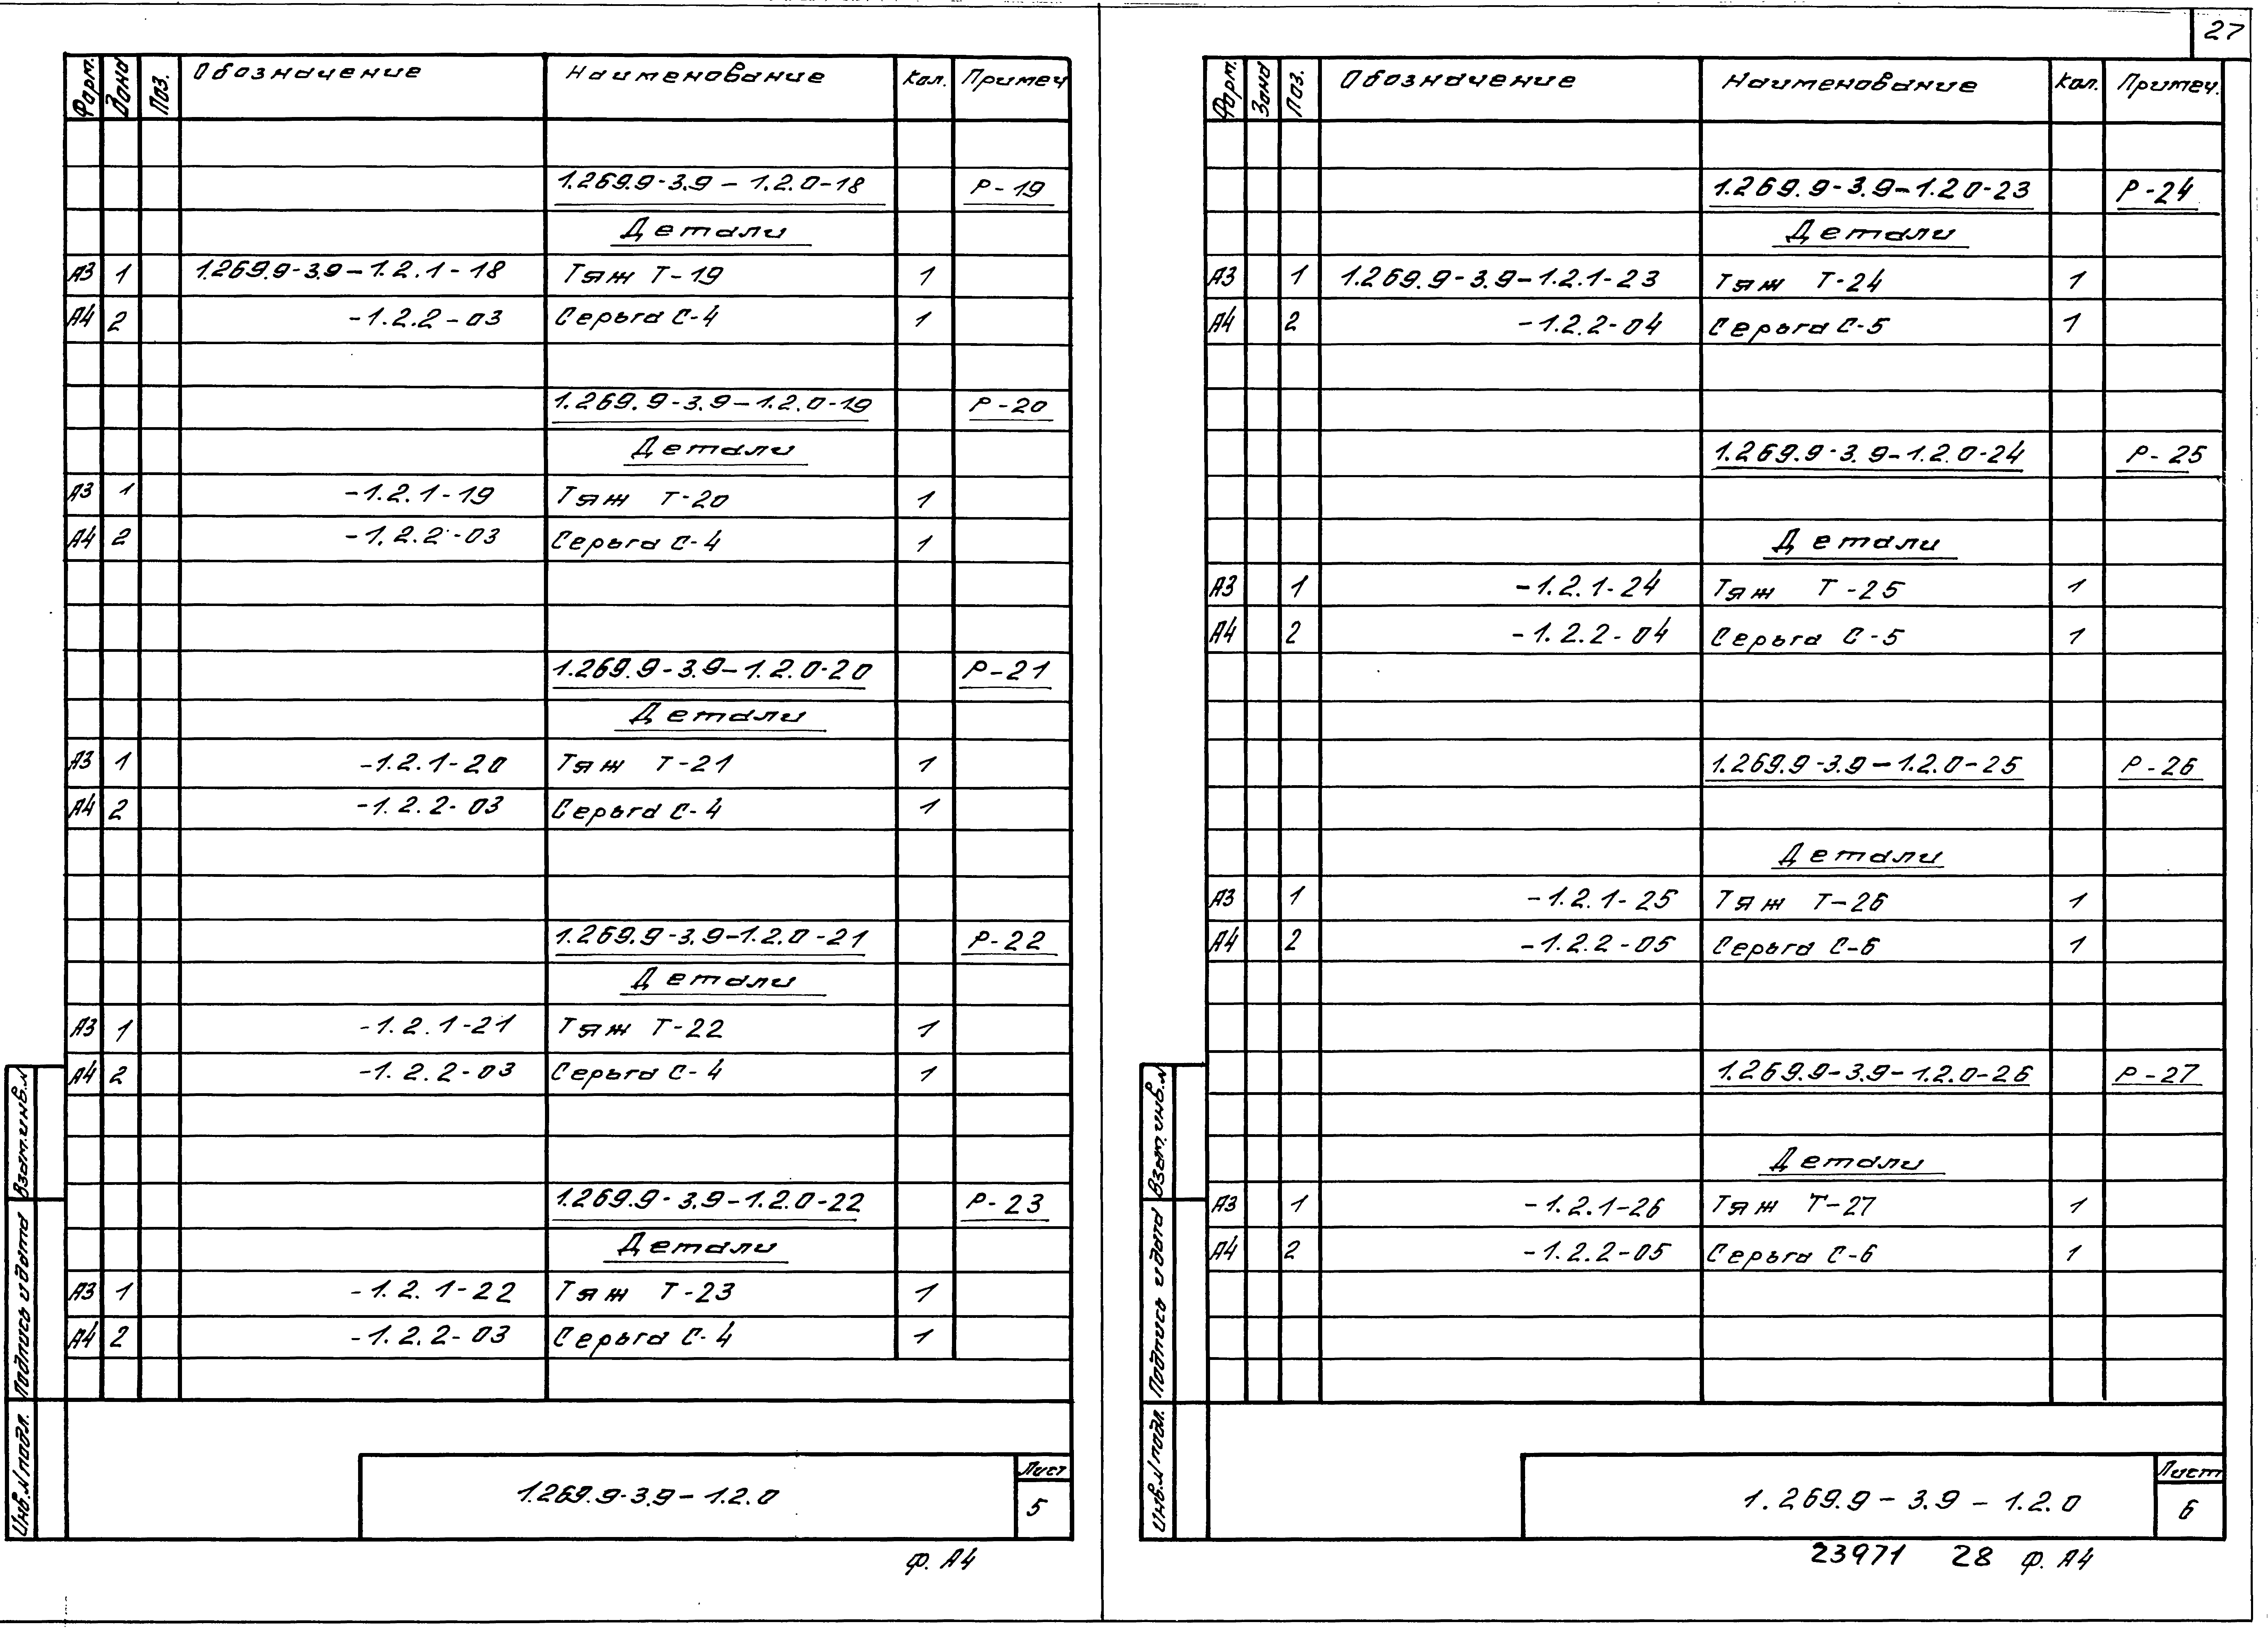 27
Форм. Зона Поз. Обозначение Наименование Кол. Примеч
1.269.9-3.9-1.2.0-18 Р-19
Детали
А3 1 1.269.9-3.9-1.2.1-18 Тяж Т-19 1
А4 2 -1.2.2-03 Серьга С-4 1
1.269.9-3.9-1.2.0-19 Р-20
Детали
А3 1 -1.2.1-19 Тяж Т-20 1
А4 2 -1.2.2-03 Серьга С-4 1
1.269.9-3.9-1.2.0-20 Р-21
Детали
А3 1 -1.2.1-20 Тяж Т-21 1
А4 2 -1.2.2-03 Серьга С-4 1
1.269.9-3.9-1.2.0-21 Р-22
Детали
А3 1 -1.2.1-21 Тяж Т-22 1
А4 2 -1.2.2-03 Серьга С-4 1
1.269.9-3.9-1.2.0-22 Р-23
Детали
А3 1 -1.2.1-22 Тяж Т-23 1
А4 2 -1.2.2-03 Серьга С-4 1
Взам.инв.N
Подпись и дата
Инв.N подл.
1.269.9-3.9-1.2.0
Лист
5
Ф. А4
Форм. Зона Поз. Обозначение Наименование Кол. Примеч.
1.269.9-3.9-1.2.0-23 Р-24
Детали
А3 1 1.269.9-3.9-1.2.1-23 Тяж Т-24 1
А4 2 -1.2.2-04 Серьга С-5 1
1.269.9-3.9-1.2.0-24 Р-25
Детали
А3 1 -1.2.1-24 Тяж Т-25 1
А4 2 -1.2.2-04 Серьга С-5 1
1.269.9-3.9-1.2.0-25 Р-26
Детали
А3 1 -1.2.1-25 Тяж Т-26 1
А4 2 -1.2.2-05 Серьга С-6 1
1.269.9-3.9-1.2.0-26 Р-27
Детали
А3 1 -1.2.1-26 Тяж Т-27 1
А4 2 -1.2.2-05 Серьга С-6 1
Взам.инв.N
Подпись и дата
Инв.N подл.
1.269.9-3.9-1.2.0
Лист
6
23971 28 Ф. А4